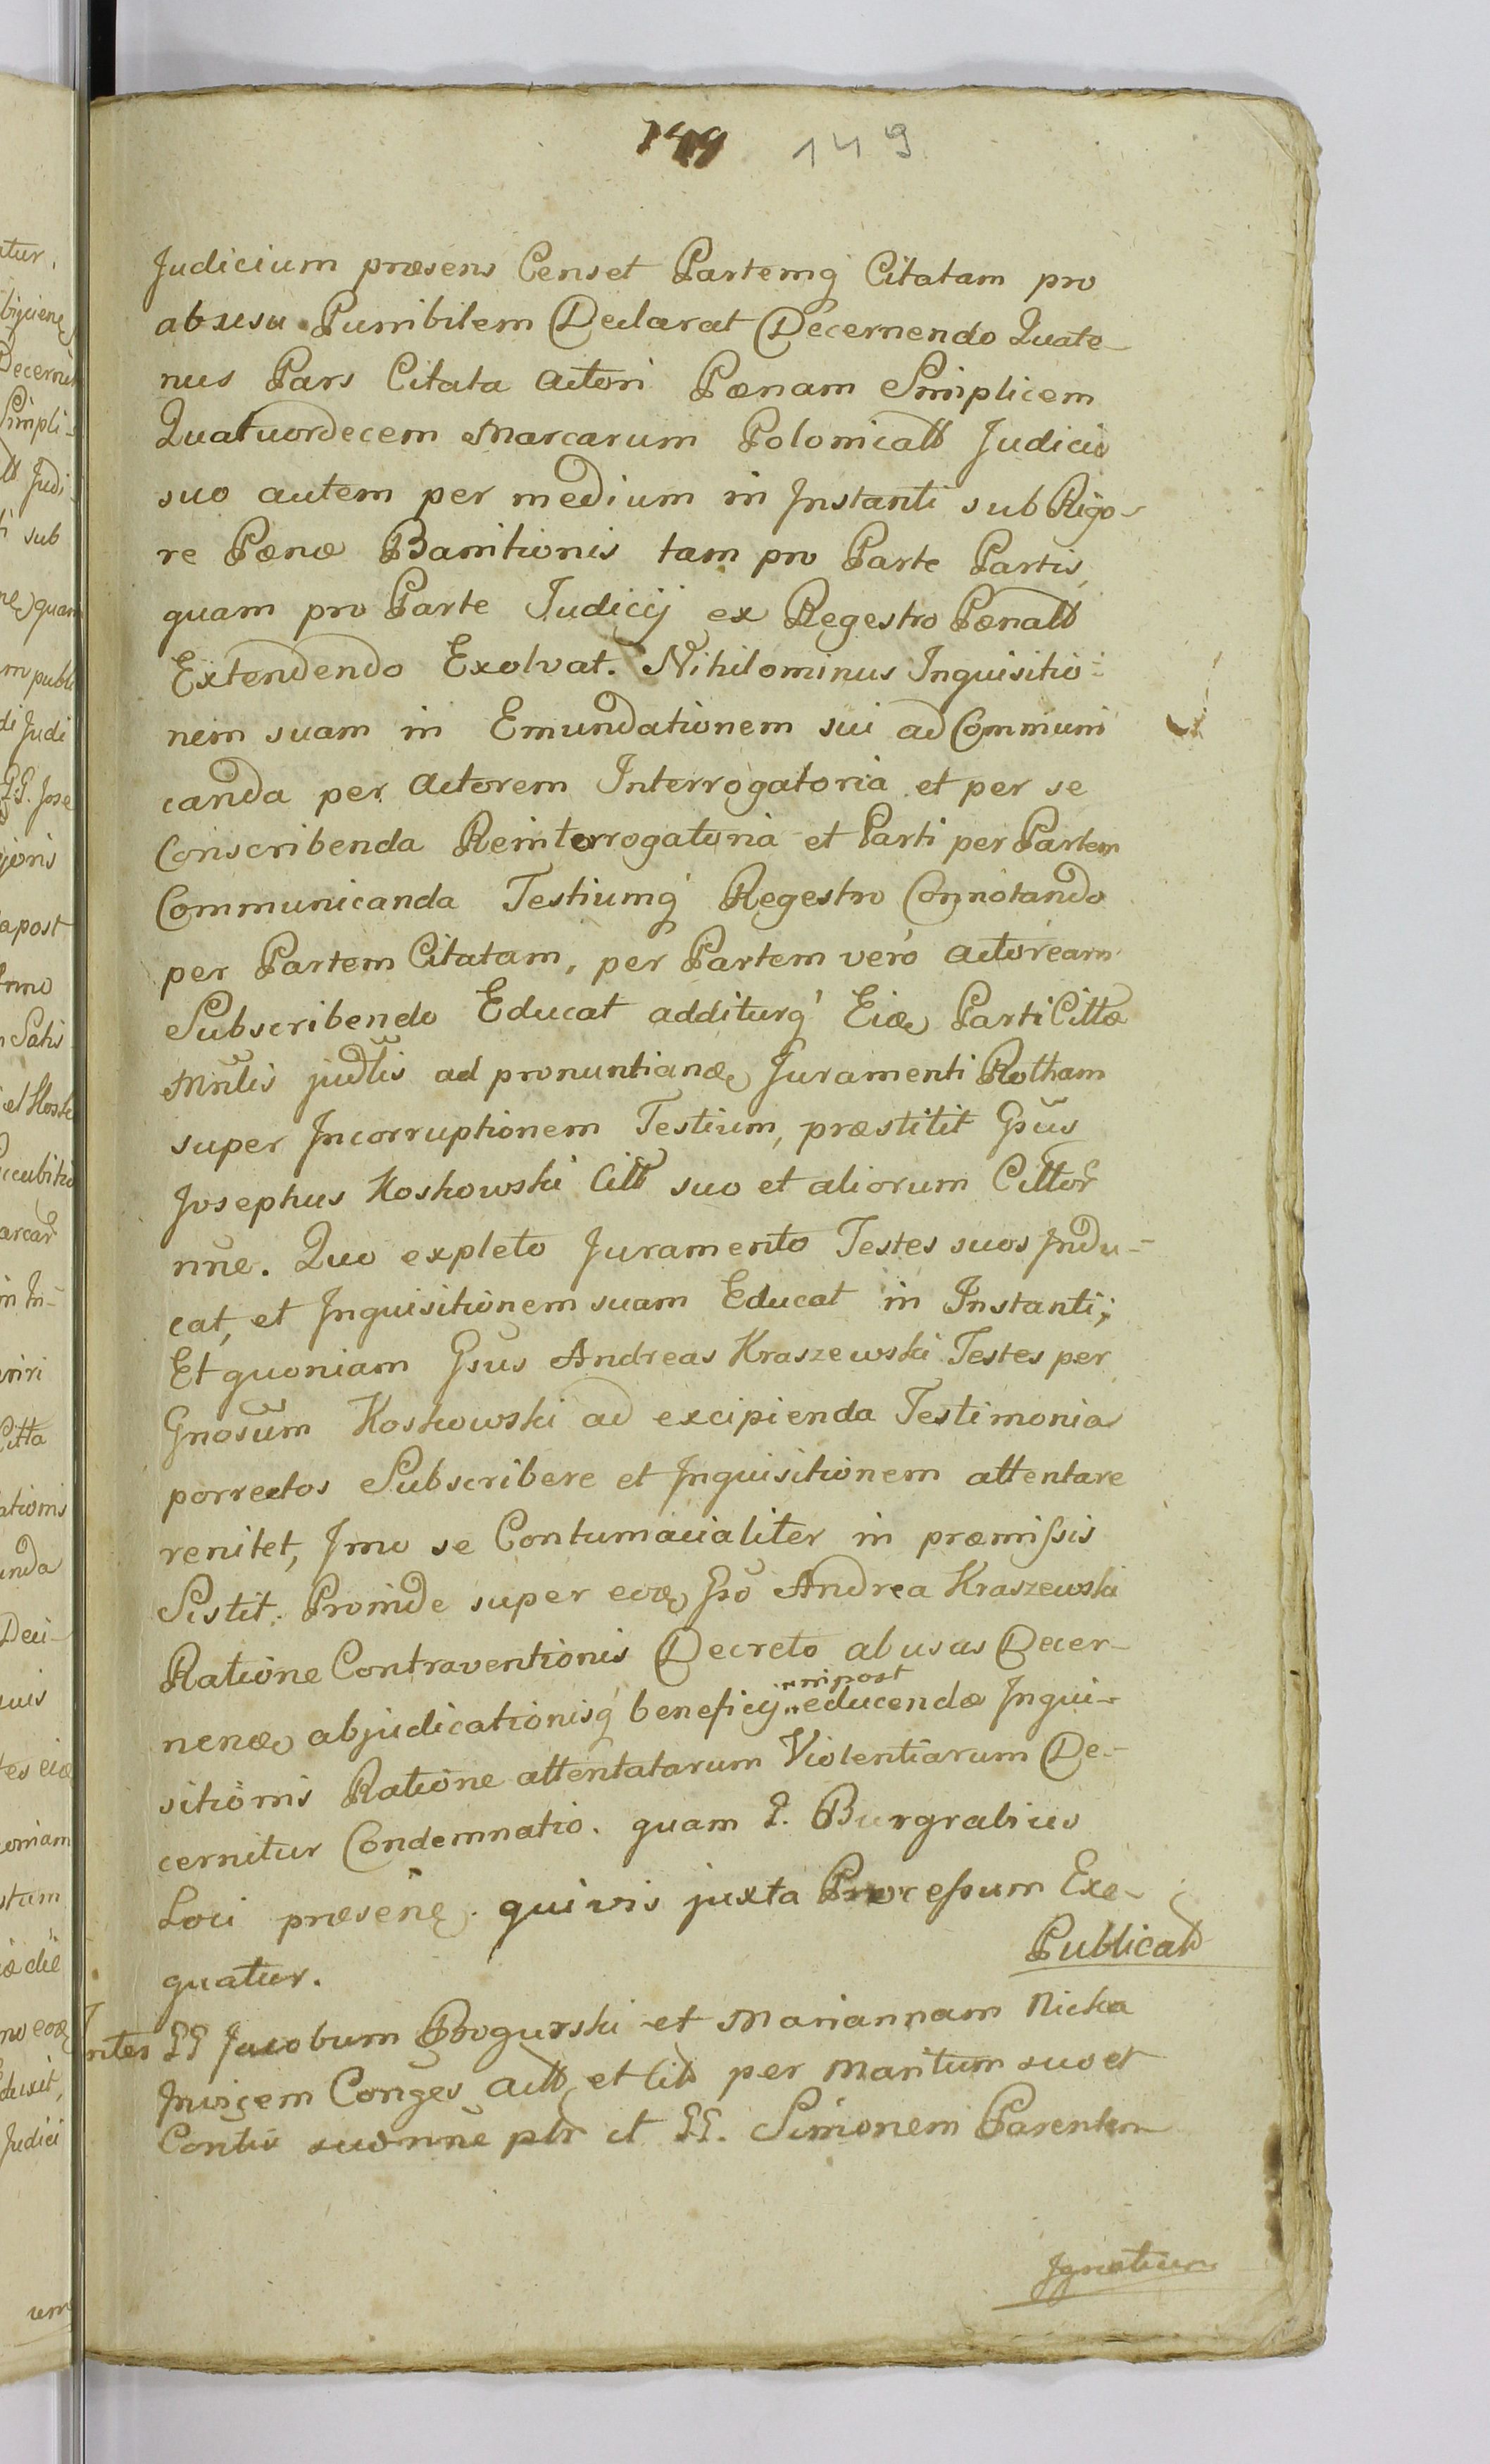 149 149
Judicium præsens Censet Partemq̨ Citatam pro
abusu Punibilem Declarat Decernendo Quate-
nus Pars Citata Actori Pænam Simplicem
Quatuordecem Marcarum Polonicall Judicio
suo autem per medium in Instanti sub Rigo-
re Pænæ Banitionis tam pro Parte Partis,
quam pro Parte Judicij ex Regestro Pænall
Extendendo Exolvat. Nihilominus Inquisitio-
nem suam in Emundationem sui ad Communi
canda per Actorem Interrogatoria et per se
Conscribenda Reinterrogatoria et Parti per Partem
Communicanda Testiumq̨ Regestro Connotando
per Partem Citatam, per Partem verò Actoream
Subscribendo Educat additurq̨ Eidę Parti Cittæ
Mnlis judlis ad pronuntiandę Juramenti Rotham
super Incorruptionem Testium, præstitit Gsus
Josephus Koskowski Citt suo et aliorum Cittor
nne. Quo expleto Juramento Testes suos Indu-
cat, et Inquisitionem suam Educat in Instanti;
Et quoniam Gsus Andreas Kraszewski Testes per
Gnosum Koskowski ad excipienda Testimonia
porrectos Subscribere et Inquisitionem attentare
renitet, Imo se Contumacialiter in præmissis
Sistit. Proinde super eodę Gso Andrea Kraszewski
Ratione Contraventionis Decreto abusus Decer-
nendę abjudicationisq̨ beneficij inpost educendæ Inqui-
sitionis Ratione attentatarum Violentiarum De-
cernitur Condemnatio. quam G. Burgrabius
Loci præsenę. quivis juxta Processum Exe-
quatur.
Publicat
Inter GG Jacobum Bogurski et Mariannam Nicka
Invicem Conges Act et Cit per Maritum suo et
Contis suo nne ptr et GG. Simonem Parentem
Ignatium